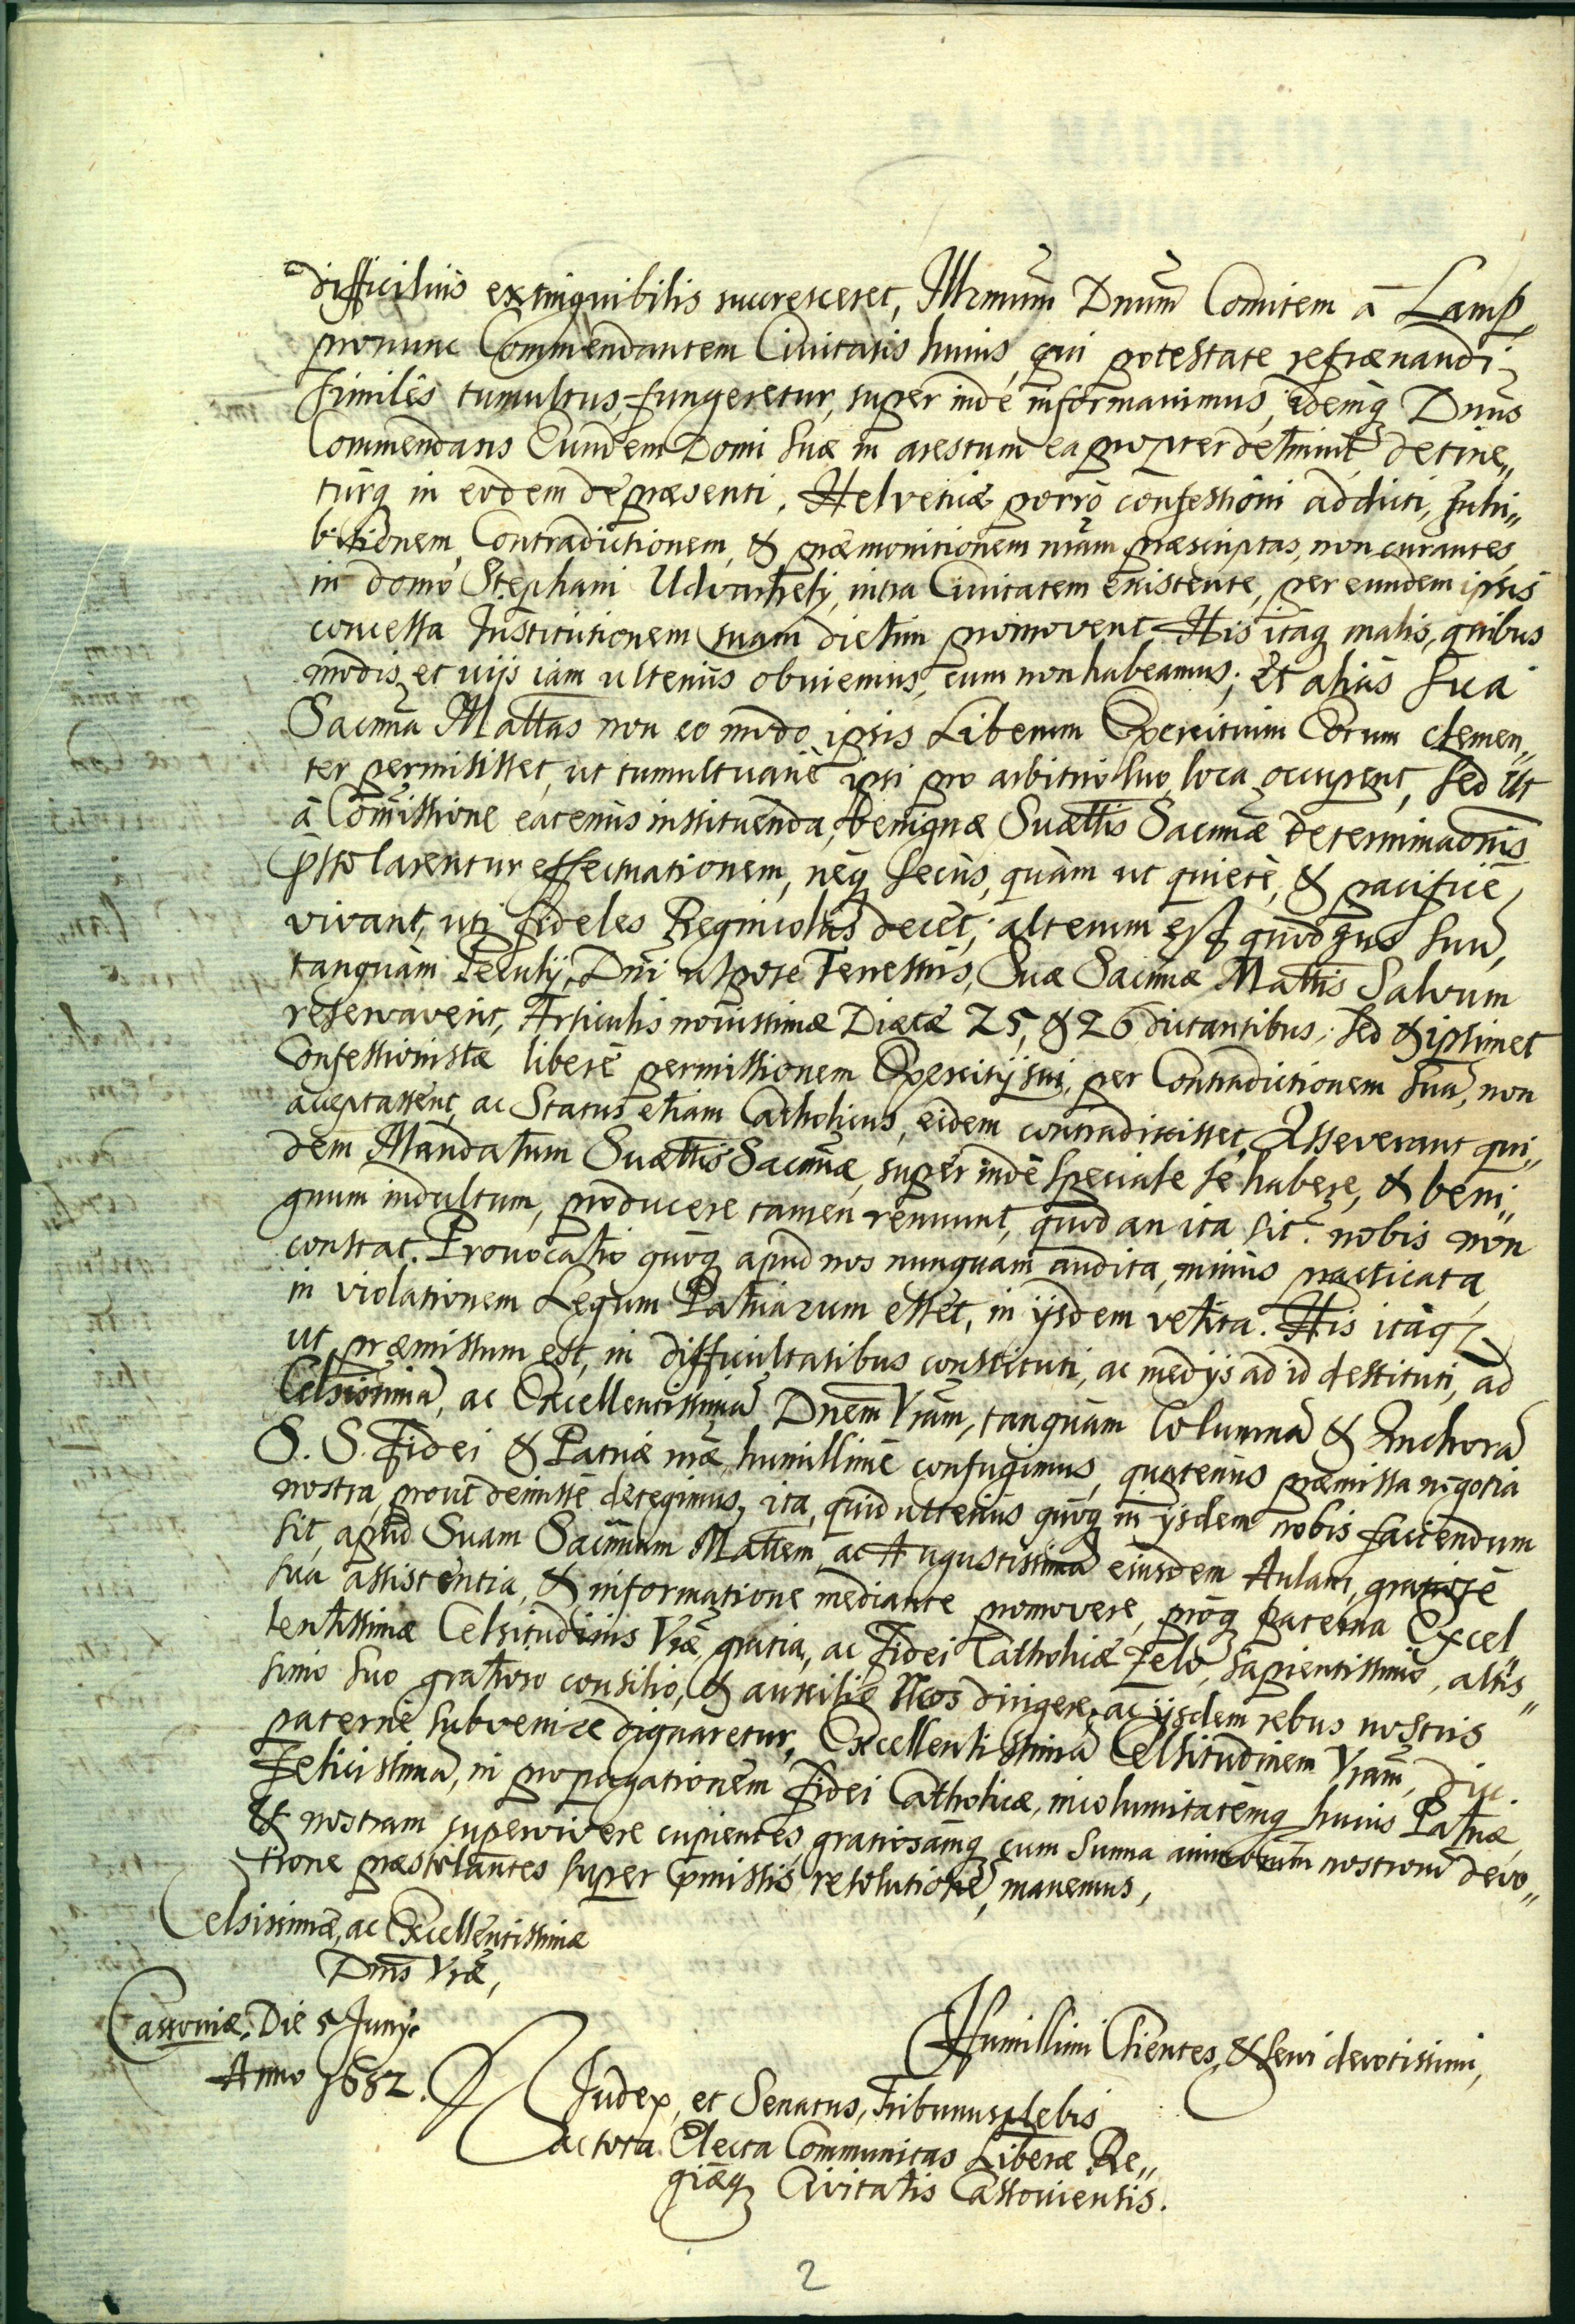 difficiliùs extinguibilis succresceret, Illrmum Dnum Comitem à Lamp,
pronunc Commendantem Civitatis huius, qui potestate refrænandi
similes tumultus, fungeretur, super inde informavimus, idemq Dnus
Commendans Eundem Domi suæ in arestum eapropter detinuit, detine„
turq in eodem de præsenti. Helveticæ porrò confessioni addicti, Inhi„
bitionem, Contradictionem, & præmonitionem nram præscriptas, non curantes,
in domo Stephani Udvarhely, intra Civitatem existente, per eundem ipsis
concessa Institutionem suam dietim promovent, His itaq malis, quibus
modis, et vijs iam ulteriùs obviemus, cum non habeamus; Et aliàs sua
Sacrma Mattas non eo modo ipsis Liberum Exercitium Eorum clemen„
ter permisisset, ut tumultuariè ipsi pro arbitrio suo, loca occupent, sed ut
à Commissione eatenùs instituenda, benignæ Suættis Sacrmæ determinaonis
pstolarentur effectuationem, neq secùs, quàm ut quietè, & pacificè
vivant, uti fideles Regnicolas decet; alterum est quod Jus suu,
tanquàm Peculij, Dni utpote Terrestris, Sua Sacrma Mattas Salvum
reservaverit, Articulis novissimæ Diætæ 25, & 26 dictantibus. sed & ipsimet
Confessionistæ liberè permissionem Exercitij sui, per Contradictionem sua, non
acceptassent, ac Status etiam Catholicus, eidem contradixisset, Asseverant qui„
dem Mandatum Suættis Sacrmæ, super inde speciale se habere, & beni„
gnum indultum, producere tamen renuunt, quod an ita sit? nobis non
constat. Provocatio quoq apud nos nunquam audita, minùs practicata,
in violationem Legum Patriarum esset, in ijsdem vetita. His itaq,
ut præmissum est, in difficultatibus constituti, ac medijs ad id destituti, ad
Celsissima, ac Excellentissima Dnem Vram, tanquam Columna & Anchora
S. S. Fidei & Patriæ nræ humillimè confugimus, quatenùs præmissa negotia
nostra, prout demissè detegimus, ita, quid ulteriùs quoq in ijsdem nobis faciendum
sit, apud Suam Sacrmam Mattem, ac Augustissima eiusdem Aulam, gratiosè
sua assistentia, & informatione mediante promovere, proq paterna Excel„
lentissimæ Celsitudinis Vræ gratia, ac Fidei Catholicæ zelo, sapientissimo, altis„
simo suo gratioso consilio, & auxilio Nos dirigere, ac ijsdem rebus nostris
paternè subvenire dignaretur, Excellentissima Celsitudinem Vram, diu
Felicissima, in propagationem Fidei Catholicæ, incolumitatemq huius Patriæ
& nostram supervivere cupientes, gratiosamq cum summa animorum nostrorum devo„
tione præstolantes super pmissis resolutione, manemus,
Celsissimæ, ac Excellentissimæ
Dnis Vræ,
Cassoviæ, Die 5 Junij
Anno 1682.
Humillimi Clientes, & servi devotissimi,
Judex, et Senatus, Tribunus plebis
ac tota Electa Communitas Liberæ Re„
giæq Civitatis Cassoviensis.
2